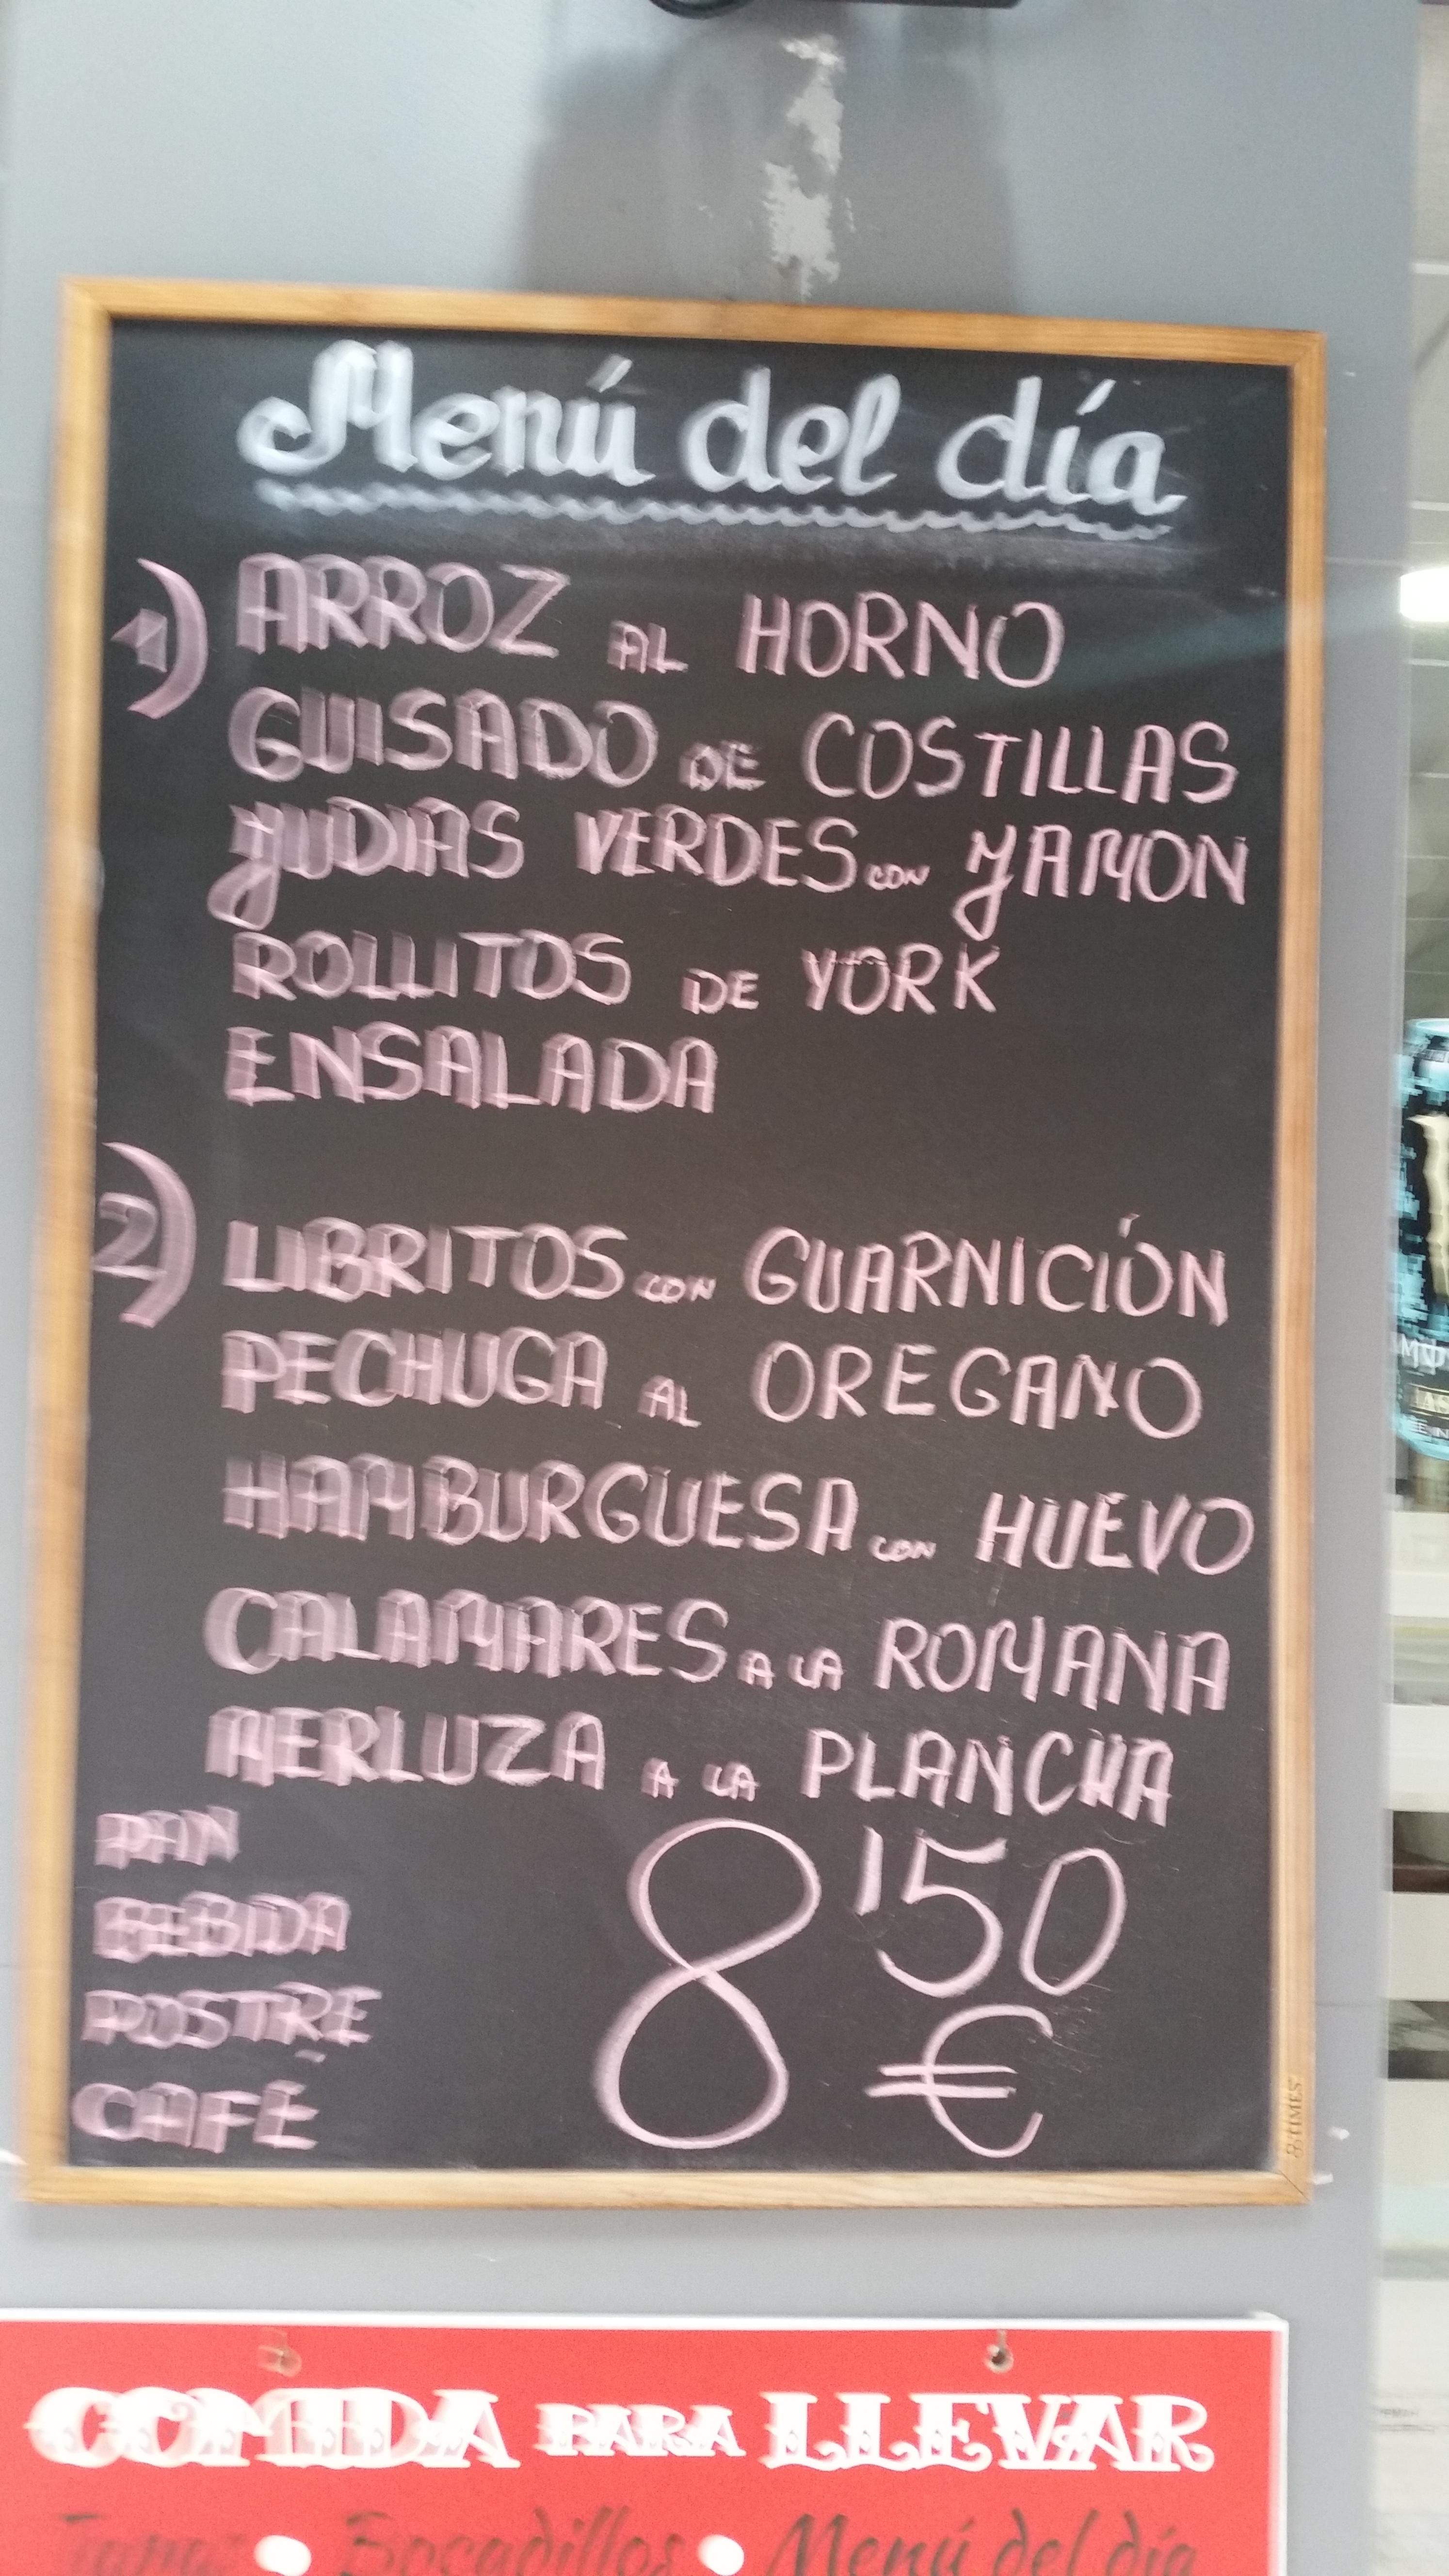 Menú del día
1) ARROZ AL HORNO
GUISADO DE COSTILLAS
JUDIAS VERDES CON JAMON
ROLLITOS DE YORK
ENSALADA
2) LIBRITOS CON GUARNICIÓN
PECHUGA AL OREGANO
HAMBURGUESA CON HUEVO
CALAMARES A LA ROMANA
MERLUZA A LA PLANCHA
PAN
BEBIDA
POSTRE
CAFÉ
8'50
€
COMIDA PARA LLEVAR
Bocadillos • Menú del día